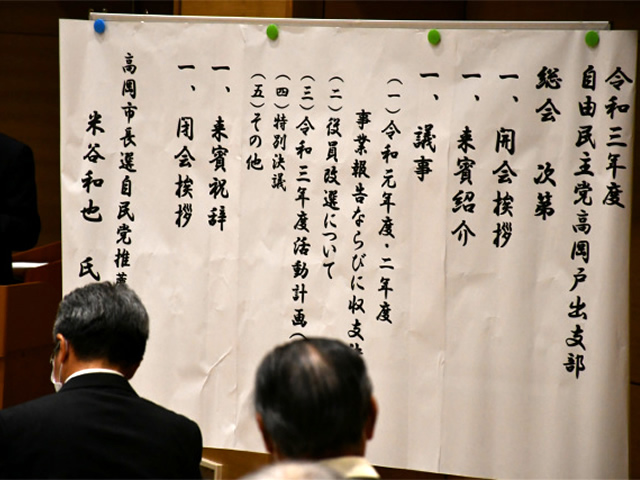 令和三年度
自由民主党高岡戸出支部
総会 次第
一、開会挨拶
一、来賓紹介
一、議事
(一)令和元年度・二年度
事業報告ならびに収支
(二)役員改選について
(三)令和三年度活動計画
(四)特別決議
(五)その他
一、来賓祝辞
一、閉会挨拶
高岡市長選自民党推薦
米谷和也 氏